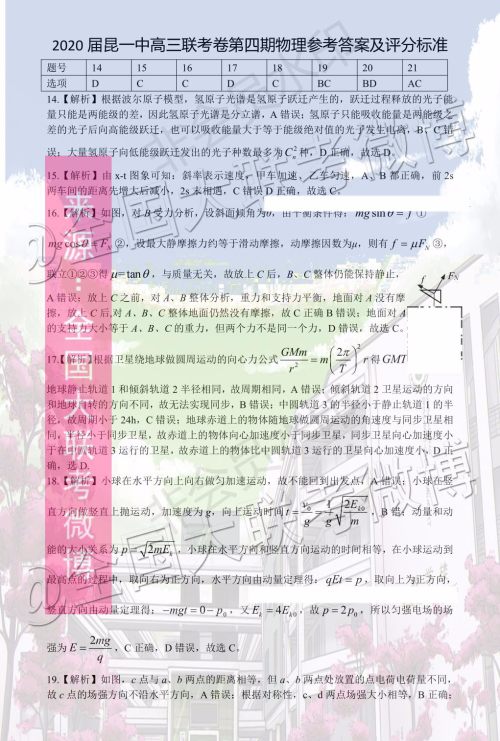 2020 届昆一中高三联考卷第四期物理参考答案及评分标准
题号 14 15 16 17 18 19 20 21
选项 D C C D C BC BD AC
14.【解析】根据波尔原子模型,氢原子光谱是氢原子跃迁产生的,跃迁过程释放的光子能
量只能是两能级的差,因此氢原子光谱是分立谱,A 错误;氢原子只能吸收能量是两能级之
差的光子后向高能级跃迁,也可以吸收能量大于等于能级绝对值的光子发生电离,B、C 错
误;大量氢原子向低能级跃迁发出的光子种数最多为 种,D 正确,故选 D。
15.【解析】由 x-t 图象可知:斜率表示速度,甲车加速、乙车匀速,A、B 都正确,前 2s
两车间的距离先增大后减小,2s 末相遇,C 错误 D 正确,故选 C。
16.【解析】如图,对 B 受力分析,设斜面倾角为θ,由平衡条件得:mg sin θ = f ①
mg cos θ = F_N ②,设最大静摩擦力约等于滑动摩擦,动摩擦因数为μ,则有 f = μF_N ③,
联立①②③得 μ=tan θ,与质量无关,故放上 C 后,B、C 整体仍能保持静止,
f F_N
A 错误;放上 C 之前,对 A、B 整体分析,重力和支持力平衡,地面对 A 没有摩
擦,放上 C 后,对 A、B、C 整体地面仍然没有摩擦,故 C 正确 B 错误;地面对 A
的支持力大小等于 A、B、C 的重力,但两个力不是同一个力,D 错误,故选 C。
17.【解析】根据卫星绕地球做圆周运动的向心力公式 GMm/r² = m(2π/T)² r 得 GMT
地球静止轨道 1 和倾斜轨道 2 半径相同,故周期相同,A 错误;倾斜轨道 2 卫星运动的方向
和地球自转的方向不同,故无法实现同步,B 错误;中圆轨道 3 的半径小于静止轨道 1 的半
径,故周期小于 24h,C 错误;地球赤道上的物体随地球做圆周运动的角速度与同步卫星相
同,半径小于同步卫星,故赤道上的物体向心加速度小于同步卫星,同步卫星向心加速度小
于在中圆轨道 3 运行的卫星,故赤道上的物体比中圆轨道 3 运行的卫星向心加速度小,D 正
确,选 D。
18.【解析】小球在水平方向上向右做匀加速运动,故不能回到出发点,A 错误;小球在竖
直方向做竖直上抛运动,加速度为 g,向上运动时间 t = v₀/g = 1/g √(2E_k0/m),B 错;动量和动
能的大小关系为 p = √(2mE_k),小球在水平方向和竖直方向运动的时间相等,在小球运动到
最高点的过程中,取向右为正方向,水平方向由动量定理得:qEt = p,取向上为正方向,
竖直方向由动量定理得:−mgt = 0 − p₀,又 E_k = 4E_k0,故 p = 2p₀,所以匀强电场的场
强为 E = 2mg/q,C 正确,D 错误,故选 C。
19.【解析】如图,c 点与 a、b 两点的距离相等,但 a、b 两点处放置的点电荷电荷量不同,
故 c 点的场强方向不沿水平方向,A 错误;根据对称性,c、d 两点场强大小相等,B 正确;
来源:全国大联考微博
@全国大联考微博
@全国大联考微博